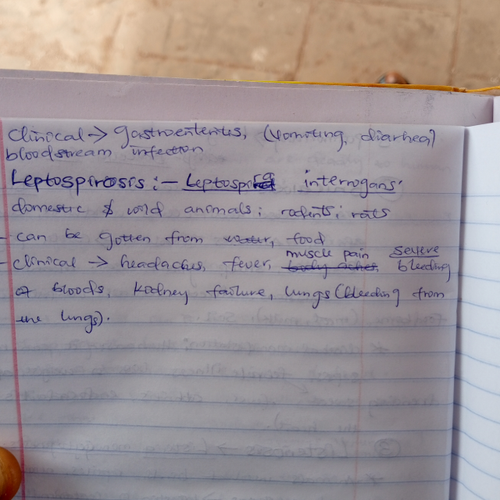 clinical → gastroenterites, (vomiting, diarrhea)
bloodstream infection
Leptospirosis :- Leptospira interrogans.
domestic & wild animals; rodents; rats
- can be gotten from water, food
- clinical → headaches, fever, muscle pain severe bleeding
of bloods, kidney failure, lungs (bleeding from
the lungs).